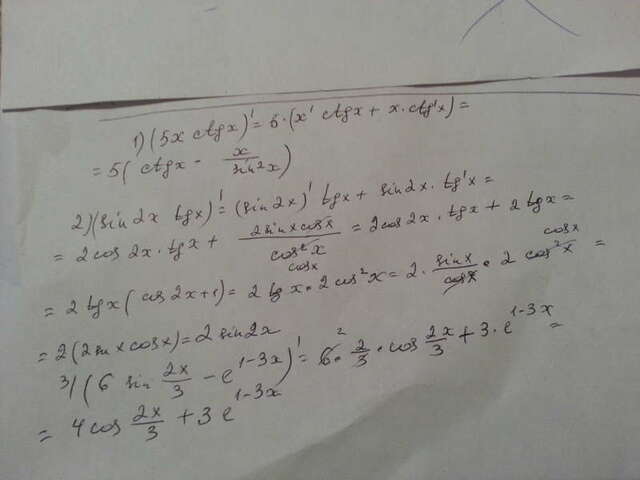 1) (5x ctgx)' = 5·(x' ctgx + x·ctg'x) =
= 5(ctgx - x/sin²x)
2) (sin2x tgx)' = (sin2x)' tgx + sin2x·tg'x =
= 2cos2x·tgx + 2sinxcosx/cos²x = 2cos2x·tgx + 2tgx =
cosx cosx
= 2tgx(cos2x+1) = 2tgx·2cos²x = 2·sinx/cosx·2cos²x =
= 2(2sinxcosx) = 2sin2x
3) (6 sin 2x/3 - e^(1-3x))' = 6·2/3·cos 2x/3 + 3·e^(1-3x) =
= 4cos 2x/3 + 3e^(1-3x)